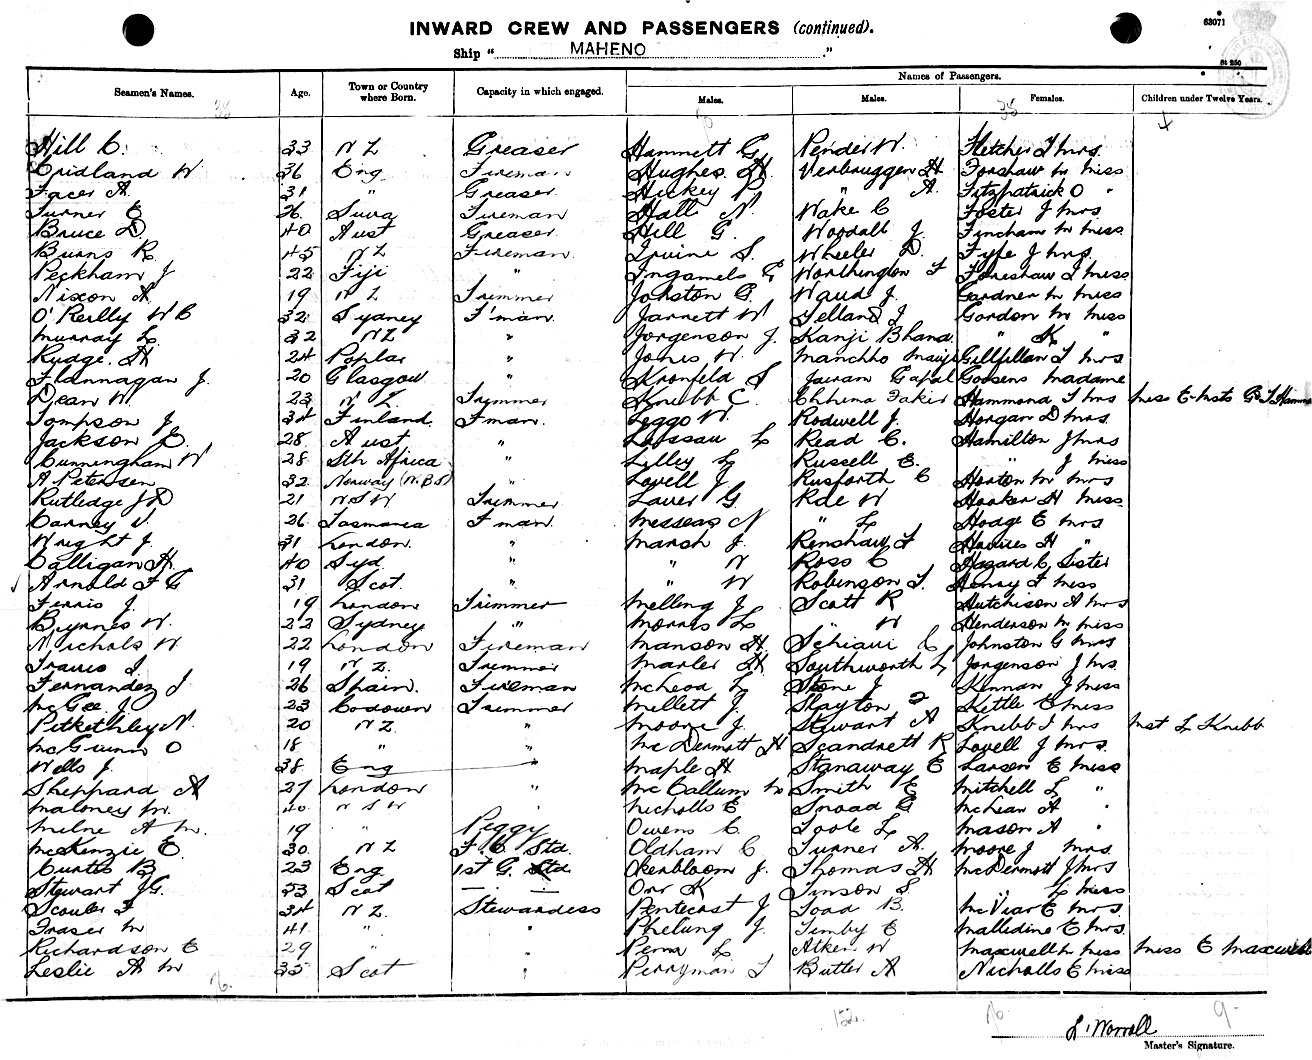 63071
INWARD CREW AND PASSENGERS (continued).
Ship " MAHENO "
St 250
Names of Passengers.
Seamen's Names. Age. Town or Country where Born. Capacity in which engaged. Males. Males. Females. Children under Twelve Years.
Hill C. 33 N Z Greaser Hammett G Pender W. Fletcher I Mrs.
Cridland W 36 Eng Fireman Hughes H Verbruggen H Forshaw M Miss
Facer A. 31 " Greaser Hickey P " A. Fitzpatrick O "
Turner E 26 Suva Fireman Hall N. Wake C Foster J Mrs
Bruce D 40 Aust Greaser Hill G. Woodall J. Fincham M Miss
Burns R. 45 N Z Fireman Irvine S. Wheeler D. Fyfe J Mrs.
Peckham J 22 Fiji " Ingamels E Worthington F Foreshaw I Miss
Nixon A. 19 N Z Trimmer Johston G. Waud J. Gardner M Miss
O'Reilly W C 32 Sydney F'man Jarrett W Yelland J Gordon M Miss
Murray L. 32 NZ " Jorgenson J. Kanji Bhana " K "
Rudge. H 24 Poplar " Jones W. Manchho Gillfillan I Mrs
Flannagan J. 20 Glasgow " Kronfeld S Jairam Gapal Goosens Madame
Dean W. 23 N Z Trimmer Knubb C. Chhima Fakir Hammond I Mrs Miss E
Tompson J. 34 Finland F man. Leggo W. Rodwell J. Horgan D Mrs.
Jackson E. 28 Aust " Lassau L Read C. Hamilton J Mrs
Cunningham W 28 Sth Africa " Lilley L Russell E. " J Miss
A Petersen 32 Norway (N.B.S) " Lovell J. Rusforth C Horton M Mrs
Rutledge J D 21 N S W Trimmer Laver G Roe W Hooker H Miss
Carney J. 26 Tasmania F man. Messeas N " L Hodge E Mrs
Wright J. 31 London. " Marsh J. Renshaw F H "
Calligan H. 40 Syd " " N Ross C Hazard C, Sister
Arnold F G 31 Scot. " " W Robinson T. Henry F Miss
Ferris J. 19 London Trimmer Melling J. Scott R Hutchison A Mrs
Byrnes W. 22 Sydney " Morris L " W Henderson M Miss
Nichols W 22 London Fireman Manson H Schiavi C Johnston G Mrs
Travis J. 19 N Z. Trimmer Marler H Southworth L Jorgenson J Mrs.
Fernandez J 26 Spain. Fireman McLeod L Stone J Kennan J Miss
McGee J. 23 Trimmer Mellett J. Slayton Kettle E Miss
Petkethley N. 20 N Z. " Moore J. Stewart A Knubb I Mrs Mst L Knubb
McGuinn O 18 " " McDermott H Scandrett R Lovell J Mrs.
Wells J. 38 Eng " Maple H Stanaway E Larsen E Miss
Sheppard A 27 London " McCallum M Smith E Mitchell L "
Maloney M. 40 N S W Nicholls E Snoad G McLean A "
Milne A M. 19 " Peggy Owens C. Toole L Mason A "
McKenzie E. 30 N Z F. C Std. Oldham C Turner A. Moore J Mrs.
Curtis B 23 Eng 1st G. Std Okerbloom J. Thomas H McDermott J Mrs
Stewart J G. 53 Scot Orr K Tinson S. " L Miss
Scouler F 34 N Z. Stewardess Pentecost J Toad B. McViar E Mrs.
Fraser M 41 " " Phelung J. Timby E Malledine E Mrs.
Richardson E 29 " " Perna L Atken W Maxwell M Miss Miss E Maxwell
Leslie A M 35 Scot " Perryman T Butler A Nicholls E Miss
76. 152. 76. 9-
L. Worrall
Master's Signature.